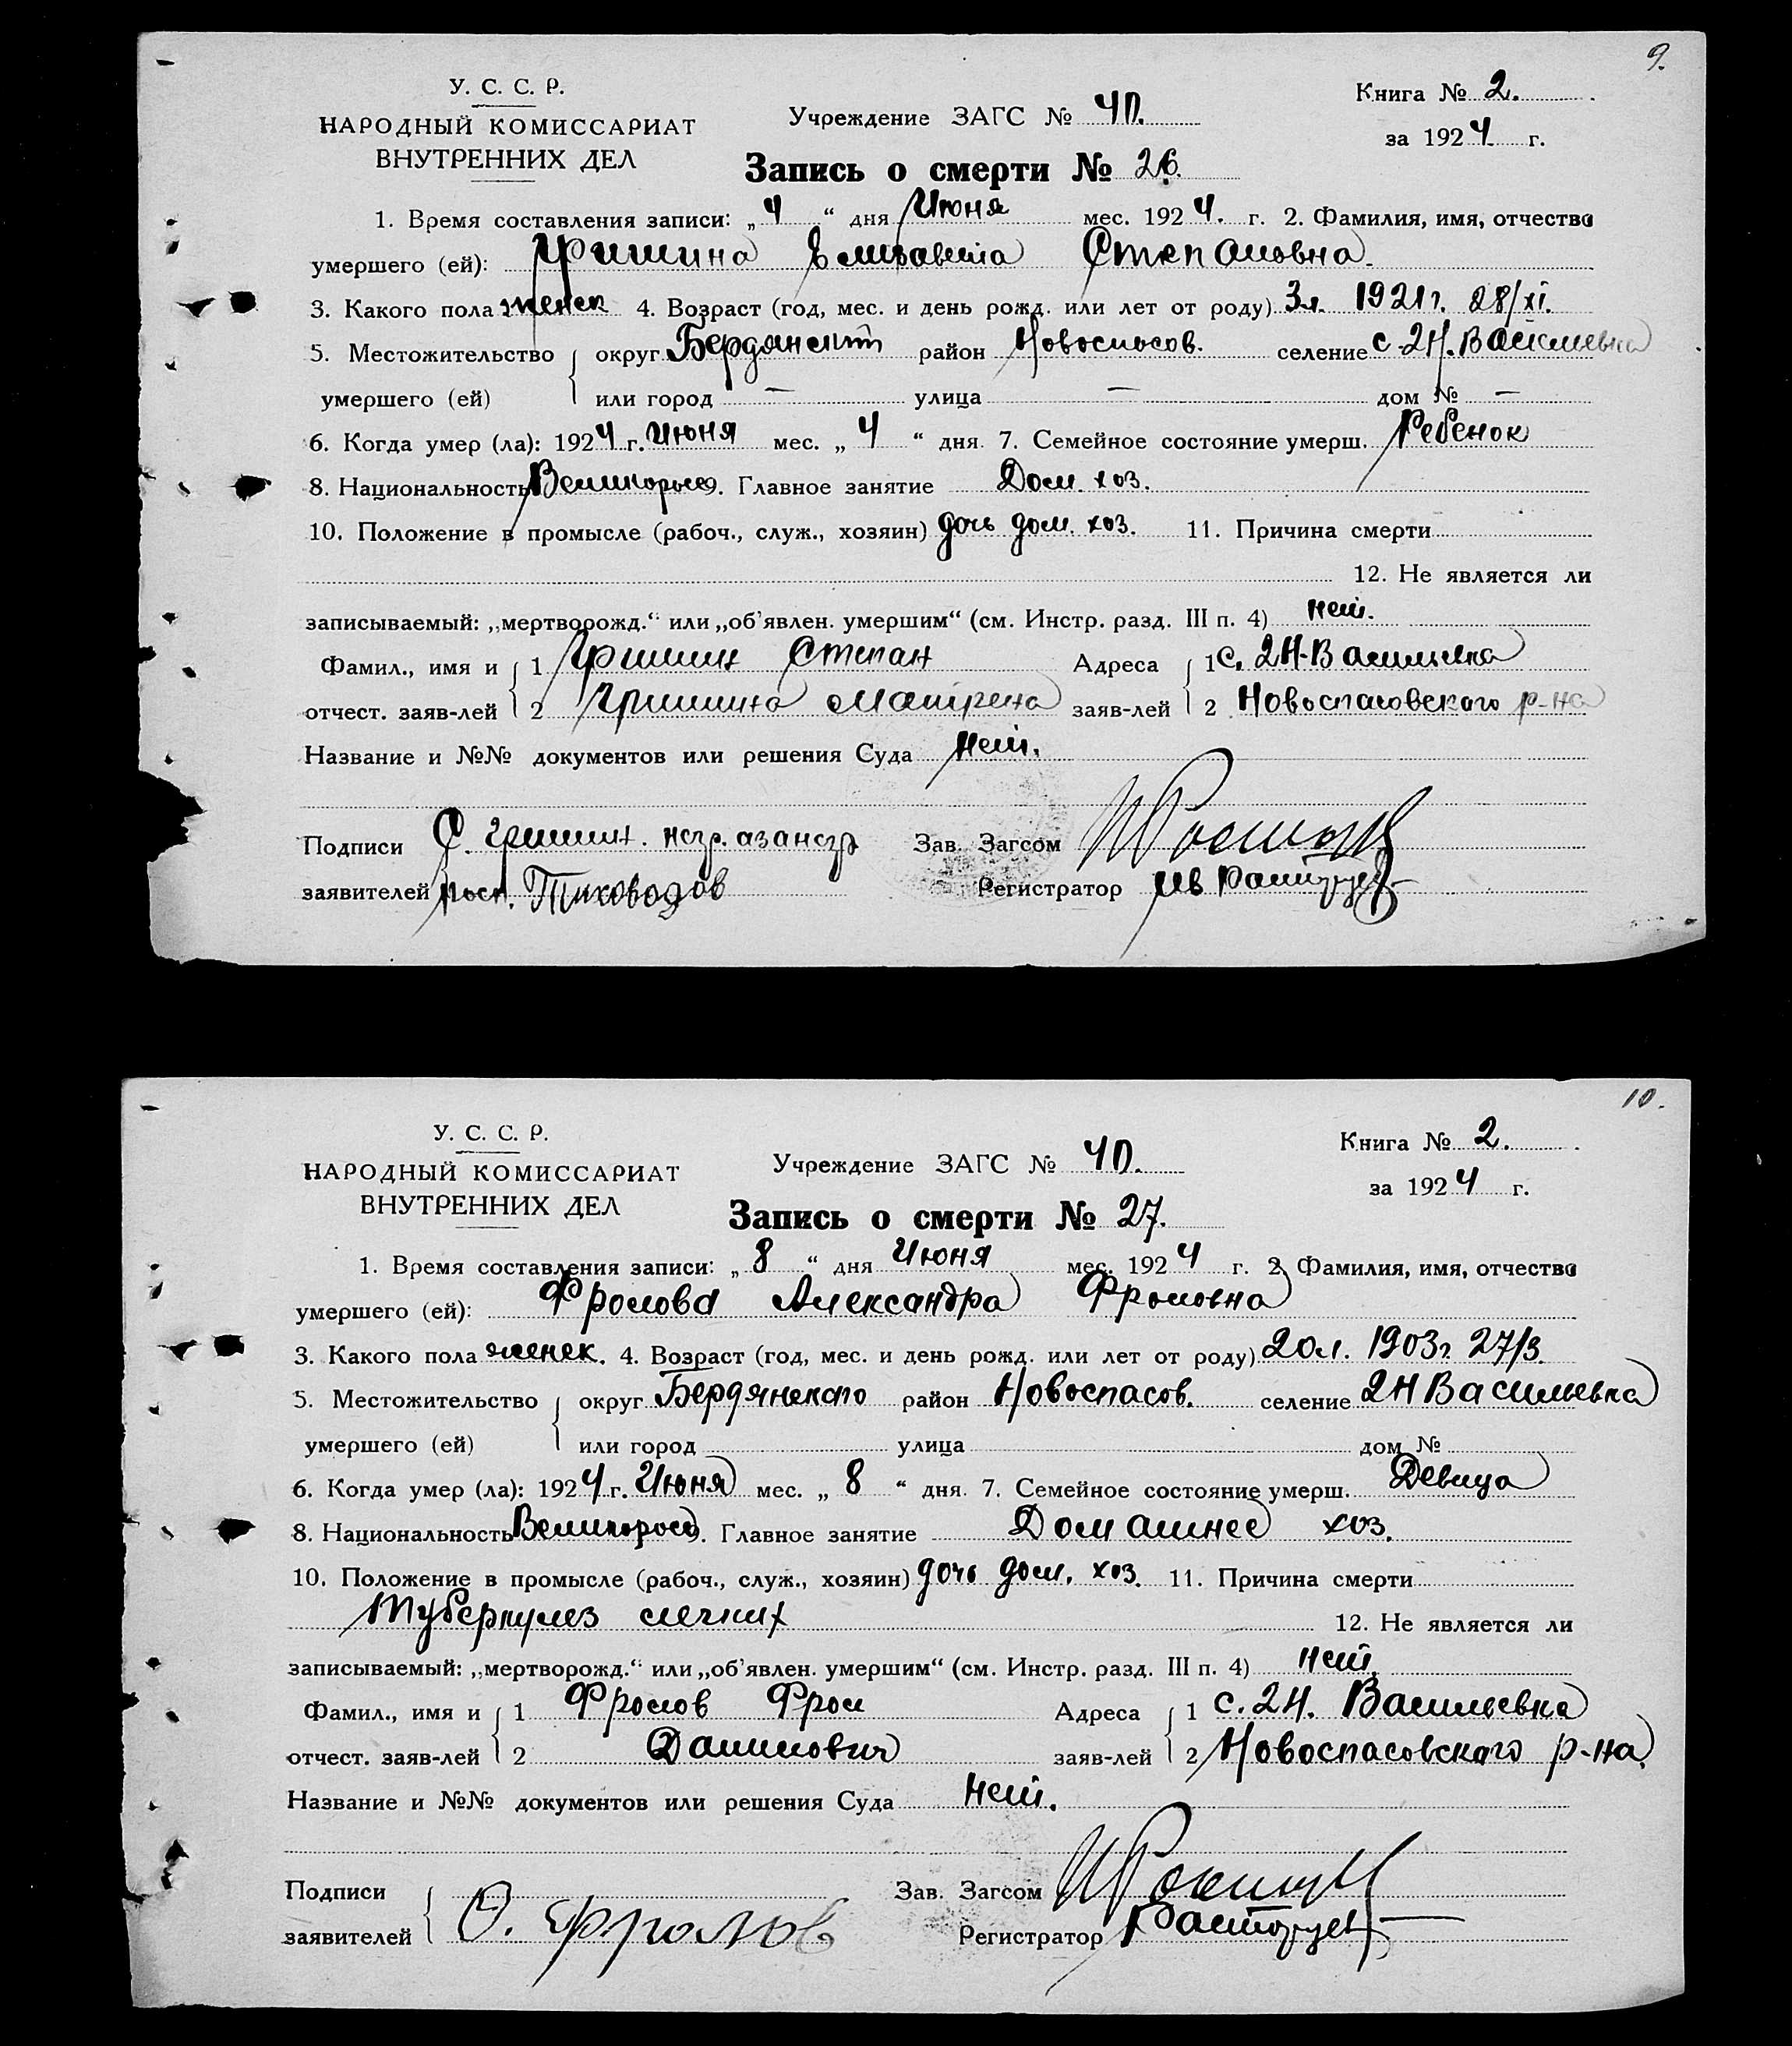 9.
У. С. С. Р.
НАРОДНЫЙ КОМИССАРИАТ
ВНУТРЕННИХ ДЕЛ
Учреждение ЗАГС № 40.
Книга № 2.
за 1924 г.
Запись о смерти № 26.
1. Время составления записи: „4“ дня Июня мес. 1924. г. 2. Фамилия, имя, отчество
умершего (ей): Гришина Елизавета Степановна.
3. Какого пола женск 4. Возраст (год, мес. и день рожд. или лет от роду) 3л. 1921г. 28/XI.
5. Местожительство округ Бердянский район Новоспасов. селение с. 2Н. Васильевка
умершего (ей) или город — улица — дом № —
6. Когда умер (ла): 1924 г. Июня мес. „4“ дня. 7. Семейное состояние умерш. Ребенок
8. Национальность Великорос 9. Главное занятие Дом. хоз.
10. Положение в промысле (рабоч., служ., хозяин) дочь дом. хоз. 11. Причина смерти
12. Не является ли
записываемый: „мертворожд.“ или „об'явлен. умершим“ (см. Инстр. разд. III п. 4) нет.
Фамил., имя и 1 Гришин Степан Адреса 1 с. 2Н-Васильевка
отчест. заяв-лей 2 Гришина Матрена заяв-лей 2 Новоспасовского р-на
Название и №№ документов или решения Суда нет.
Подписи С. Гришин. негр. а за негр Зав. Загсом
заявителей росп. Тиховодов Регистратор Ив
10.
У. С. С. Р.
НАРОДНЫЙ КОМИССАРИАТ
ВНУТРЕННИХ ДЕЛ
Учреждение ЗАГС № 40.
Книга № 2.
за 1924 г.
Запись о смерти № 27.
1. Время составления записи: „8“ дня Июня мес. 1924 г. 2. Фамилия, имя, отчество
умершего (ей): Фролова Александра Фроловна
3. Какого пола женск. 4. Возраст (год, мес. и день рожд. или лет от роду) 20л. 1903г. 27/3.
5. Местожительство округ Бердянского район Новоспасов. селение 2Н Васильевка
умершего (ей) или город улица дом №
6. Когда умер (ла): 1924 г. Июня мес. „8“ дня. 7. Семейное состояние умерш. Девица
8. Национальность Великорос 9. Главное занятие Домашнее хоз.
10. Положение в промысле (рабоч., служ., хозяин) дочь дом. хоз. 11. Причина смерти
Туберкулез легких 12. Не является ли
записываемый: „мертворожд.“ или „об'явлен. умершим“ (см. Инстр. разд. III п. 4) нет
Фамил., имя и 1 Фролов Фрол Адреса 1 с. 2Н. Васильевка
отчест. заяв-лей 2 Данилович заяв-лей 2 Новоспасовского р-на.
Название и №№ документов или решения Суда нет.
Подписи Зав. Загсом
заявителей Ф. Фролов Регистратор